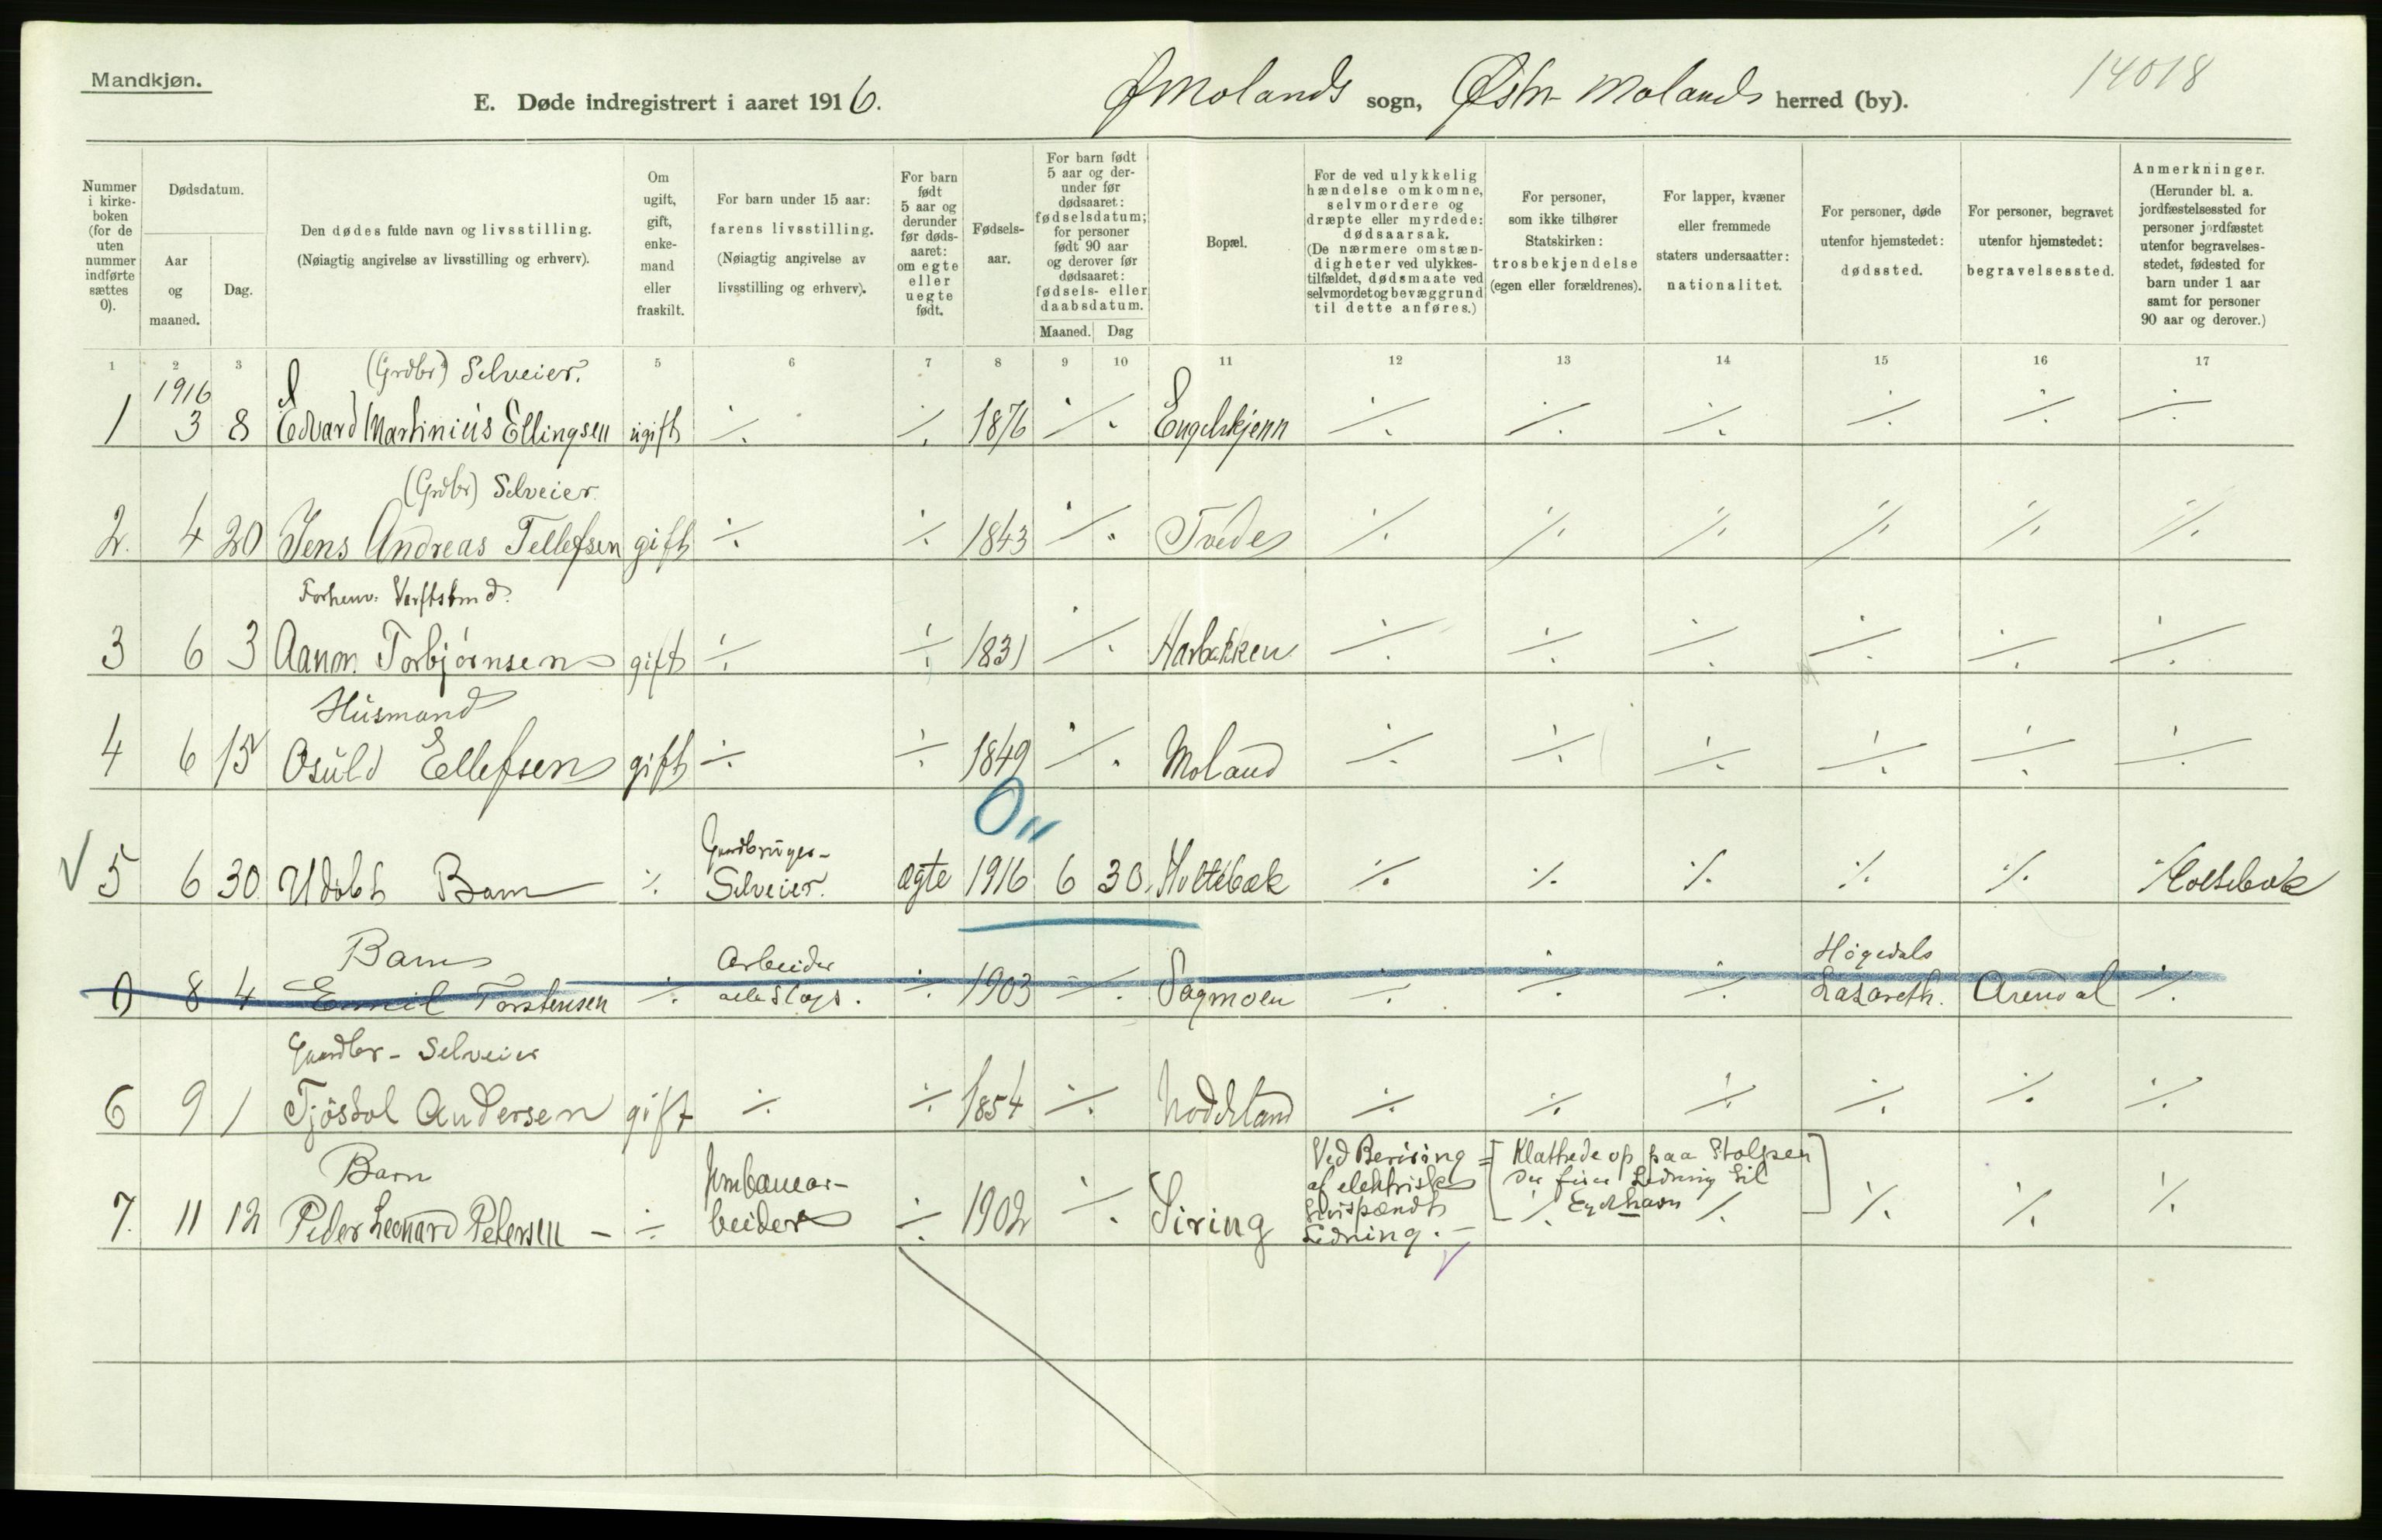 Mandkjøn.
E. Døde indregistrert i aaret 1916.
Ø Molands sogn, Østre Molands herred (by).
14018
Nummer i kirke-boken (for de uten nummer indførte sættes 0).
Dødsdatum.
Aar og maaned.
Dag.
Den dødes fulde navn og livsstilling.
(Nøiagtig angivelse av livsstilling og erhverv).
Om ugift, gift, enke-mand eller fraskilt.
For barn under 15 aar: farens livsstilling.
(Nøiagtig angivelse av livsstilling og erhverv).
For barn født 5 aar og derunder før døds-aaret: om egte eller uegte født.
Fødsels-aar.
For barn født 5 aar og der-under før dødsaaret: fødselsdatum; for personer født 90 aar og derover før dødsaaret: fødsels- eller daabsdatum.
Maaned.
Dag
Bopæl.
For de ved ulykkelig hændelse omkomne, selvmordere og dræpte eller myrdede: dødsaarsak.
(De nærmere omstæn-digheter ved ulykkes-tilfældet, dødsmaate ved selvmordet og bevæggrund til dette anføres.)
For personer, som ikke tilhører Statskirken: trosbekjendelse (egen eller forældrenes).
For lapper, kvæner eller fremmede staters undersaatter: nationalitet.
For personer, døde utenfor hjemstedet: dødssted.
For personer, begravet utenfor hjemstedet: begravelsessted.
Anmerkninger.
(Herunder bl. a. jordfæstelsessted for personer jordfæstet utenfor begravelses-stedet, fødested for barn under 1 aar samt for personer 90 aar og derover.)
1 2 3 5 6 7 8 9 10 11 12 13 14 15 16 17
1916 (Grdbr) Selveier.
1 3 8 Edvard Martinius Ellingsen ugift ./. ./. 1876 ./. Engelskjenn ./. ./. ./. ./. ./. ./.
(Grdbr) Selveier.
2. 4 20 Jens Andreas Tellefsen gift ./. ./. 1843 ./. Tvede ./. ./. ./. ./. ./. ./.
Forhenv. Verftstmd.
3 6 3 Aanon Torbjörnsen gift ./. ./. 1831 ./. Harbakken ./. ./. ./. ./. ./. ./.
Husmand
4 6 15 Osuld Ellefsen gift ./. ./. 1849 ./. Moland ./. ./. ./. ./. ./. ./.
0"
Gaardbruger-
5 6 30 Udöbt Barn ./. Selveier. ægte 1916 6 30. Holtebæk ./. ./. ./. ./. ./. Holtebæk
Barn Arbeider Högedals
0 8 4 Emil Torstensen ./. alle Slags. ./. 1903 ./. Sagmoen ./. ./. ./. Lazareth. Arendal ./.
Gaardbr - Selveier
6 9 1 Tjöstol Andersen gift ./. ./. 1854 ./. Nodeland ./. ./. ./. ./. ./. ./.
Barn
7. 11 12 Peder Leonard Petersen - ./. Jernbanear-
beider ./. 1902 ./. Siring
Ved Beröring =
af elektrisk
høispændt
Ledning. -
[Klattrede op paa Stolpen
der fører Ledning til
Eydehavn]
./. ./. ./. ./. ./.